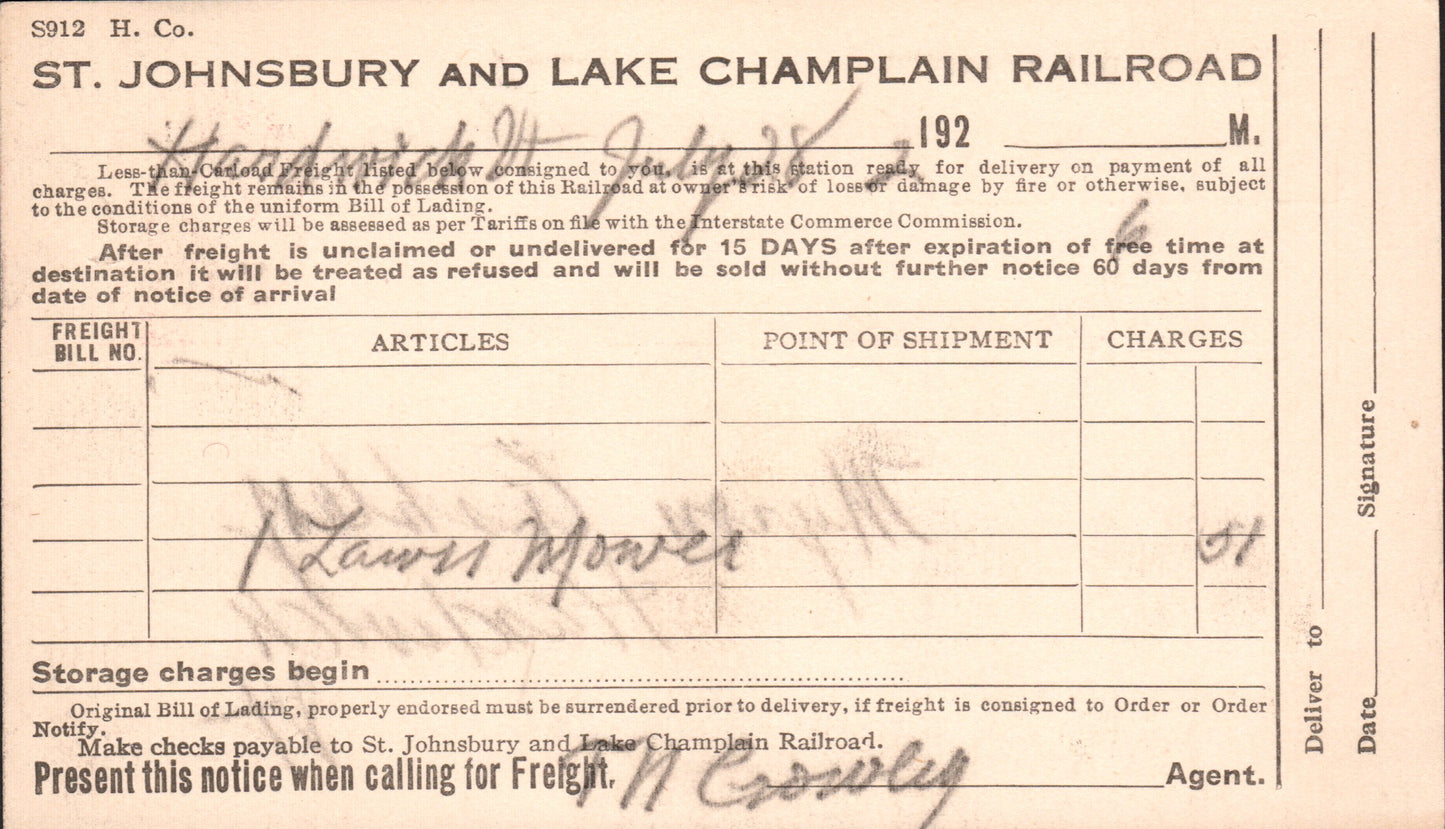 S912 H. Co.
ST. JOHNSBURY AND LAKE CHAMPLAIN RAILROAD
Hardwick Vt July 28 2 192 M.
Less-than-Carload Freight listed below consigned to you, is at this station ready for delivery on payment of all
charges. The freight remains in the possession of this Railroad at owner's risk of loss or damage by fire or otherwise, subject
to the conditions of the uniform Bill of Lading.
Storage charges will be assessed as per Tariffs on file with the Interstate Commerce Commission.
6
After freight is unclaimed or undelivered for 15 DAYS after expiration of free time at
destination it will be treated as refused and will be sold without further notice 60 days from
date of notice of arrival
FREIGHT BILL NO. ARTICLES POINT OF SHIPMENT CHARGES
1 Lawn Mower 51
Storage charges begin
Original Bill of Lading, properly endorsed must be surrendered prior to delivery, if freight is consigned to Order or Order
Notify.
Make checks payable to St. Johnsbury and Lake Champlain Railroad.
Present this notice when calling for Freight. T N Crowley Agent.
Deliver to
Date Signature